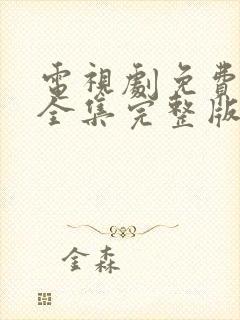 電視劇免費
全集完整版
金森